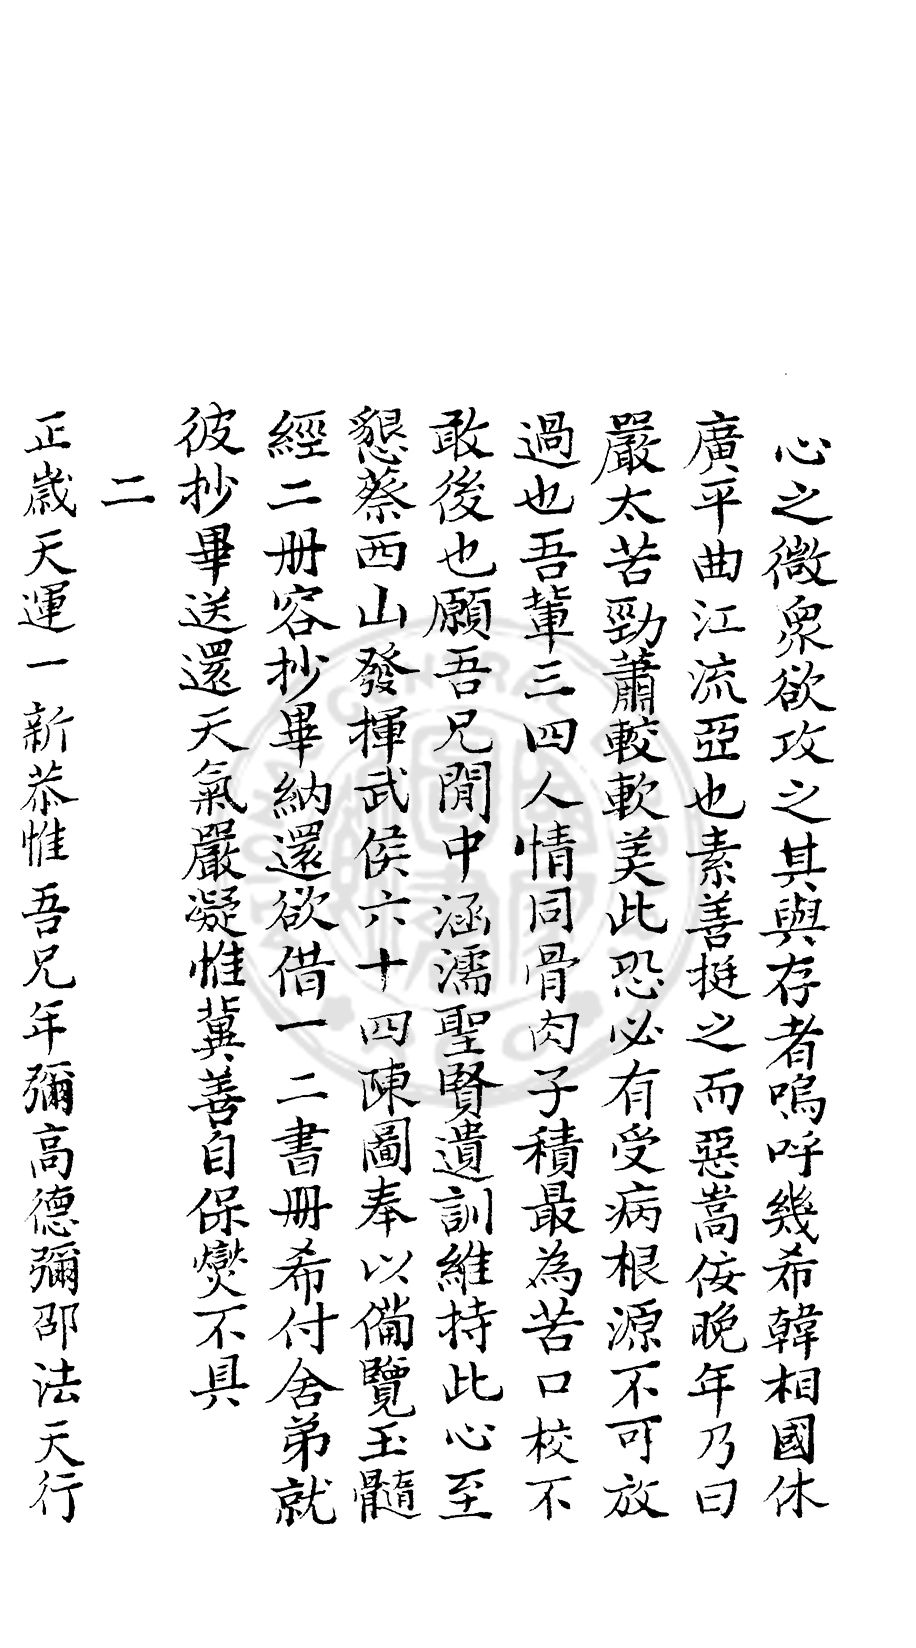 心之微衆欲攻之其與存者嗚呼幾希韓相國休
廣平曲江流亞也素善挺之而惡嵩佞晚年乃曰
嚴太苦勁蕭較軟美此恐必有受病根源不可放
過也吾輩三四人情同骨肉子積最為苦口校不
敢後也願吾兄閒中涵濡聖賢遺訓維持此心至
懇蔡西山發揮武侯六十四陳圖奉以備覽玉髓
經二册容抄畢納還欲借一二書册希付舍弟就
彼抄畢送還天氣嚴凝惟冀善自保爕不具
二
正歲天運一新恭惟吾兄年彌高德彌邵法天行